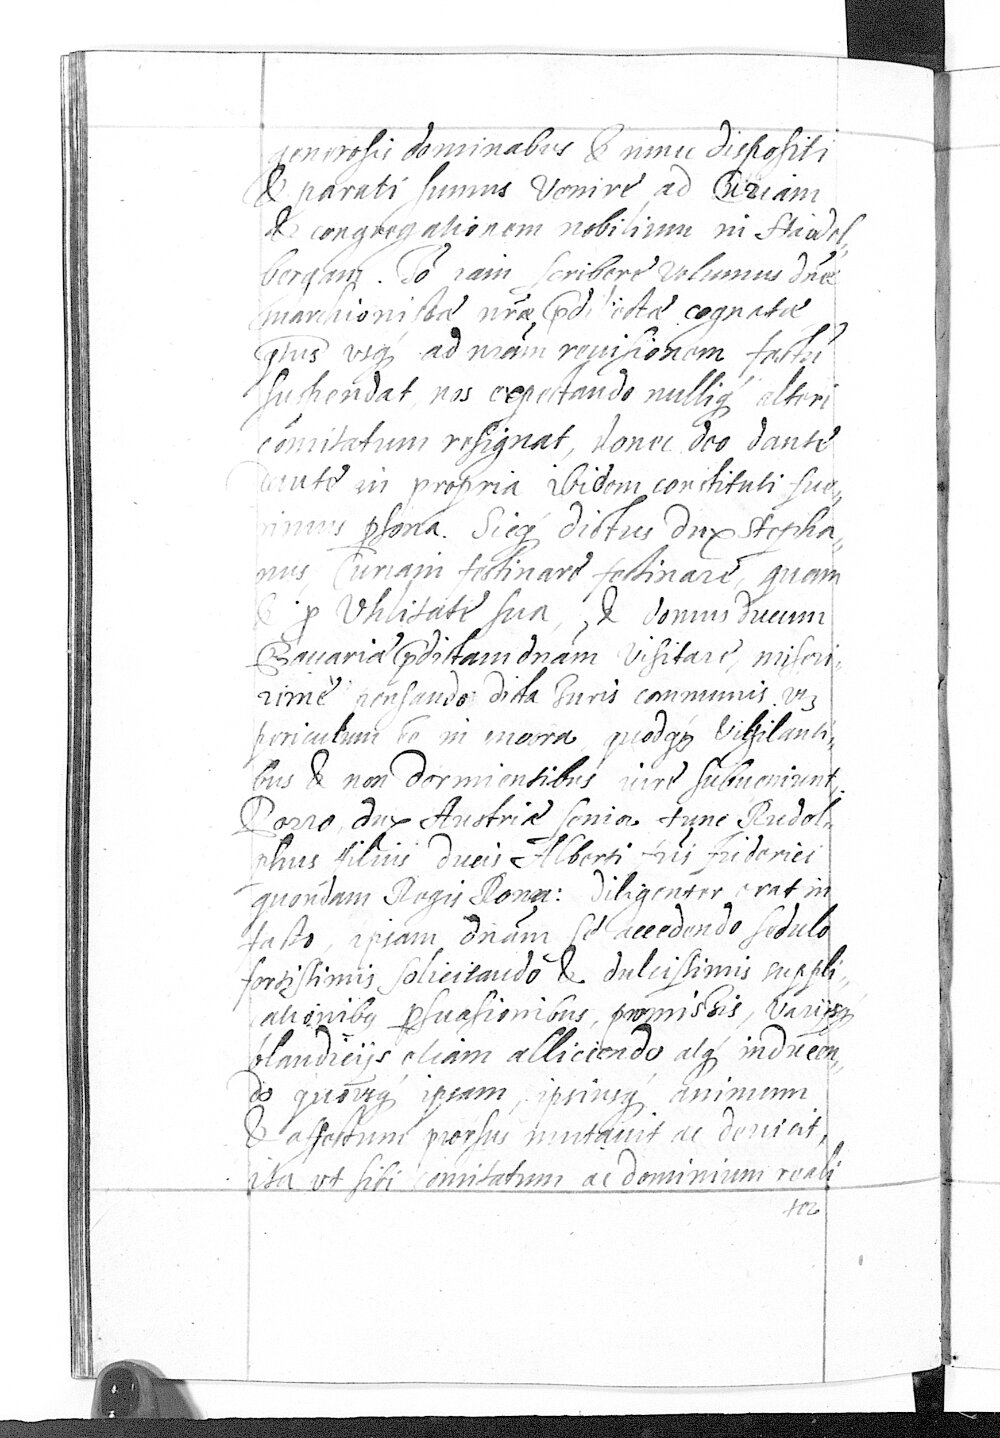 generosis dominabus & nunc dispositi
& parati sumus venire ad Curiam
& congregationem nobilium in Haidel„
bergam. Io iam scribere volumus dnæ
marchionissæ nræ pdilectæ cognatæ
ptus vsq ad nram reuisionem factu
suspendat, nos expectando nulliq alteri
comitatum resignat, donec deo dante
cauté in propria ibidem constituti fue„
rimus psona. Sicq dictus dux Stepha„
nus, Curiam festinare festinaré, quam
& p vtilitate sua, & domus ducum
Bauariæ pdictam dnam visitare, miseri„
rimè pensando dicta Iuris communis vz
periculum ee in mora, quodq vigilanti„
bus & non dormientibus iure subueniunt.
Porro, dux Austriæ senior tunc Rudol„
phus filius ducis Alberti fris friderici
quondam Regis Roma: diligenter erat in
facto, ipsam dnam se accedendo sedulo
fortissimis solicitando & dulcissimis suppli„
cationibq psuasionibus, promissis, varijsq
blandicijs etiam alliciendo atq inducen„
do quovsq ipsam, ipsiusq animum
& affectum prorsus mutauit ac deuicit,
ita vt sibi comitatum ac dominium reali
ter